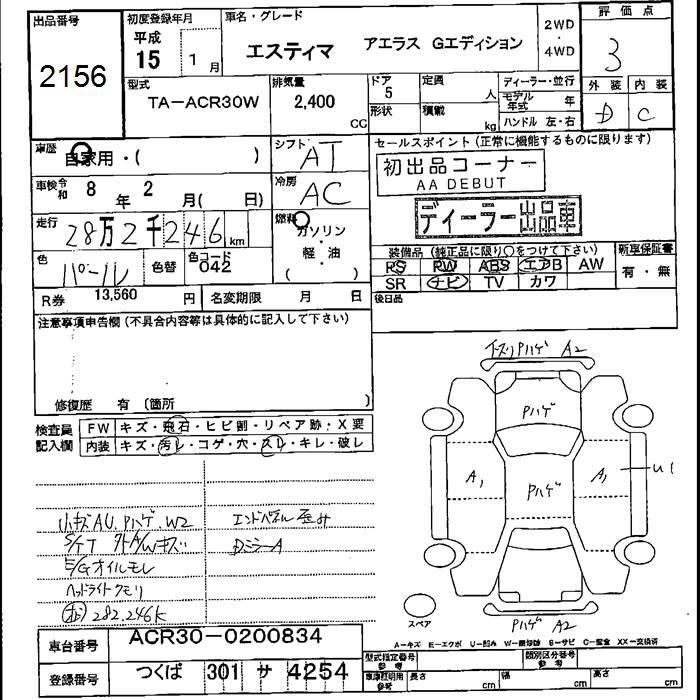 出品番号
2156
初度登録年月
平成
15 1 月
車名・グレード
エスティマ アエラス Gエディション
2WD
・
4WD
評価点
3
型式
TA-ACR30W
排気量
2,400
CC
ドア
5
形状
定員
人
積載
kg
ディーラー・並行
モデル
年式 年
ハンドル 左・右
外装 内装
D C
車歴
自家用・( )
シフト
AT
車検 令和 8 年 2 月( 日)
冷房
AC
走行
28万2千246 km
燃料
ガソリン
・
軽・油
( )
色
パール
色替
色コード
042
R券 13,560 円
名変期限 月 日
セールスポイント(正常に機能するものに限ります)
初出品コーナー
AA DEBUT
ディーラー出品車
装備品(純正品に限り○をつけて下さい)
PS PW ABS エアB AW
SR ナビ TV カワ
新車保証書
有・無
後日品
注意事項申告欄(不具合内容等は具体的に記入して下さい)
修復歴 有〔箇所 〕
検査員
記入欄
FW キズ・飛石・ヒビ割・リペア跡・X要
内装 キズ・汚レ・コゲ・穴・スレ・キレ・破レ
小キズAU.Pハゲ.W2
エンドパネル歪み
S/FT 外A/Wキズ
DミラーA
E/Gオイルモレ
ヘッドライトクモリ
282.246K
Pハゲ A2
Pハゲ
A1
Pハゲ
A1
U1
Pハゲ A2
スペア
A-キズ E-エクボ U-凹み W-補修跡 S-サビ C-腐食 XX-交換済
車台番号
ACR30-0200834
登録番号
つくば 301 サ 4254
型式指定番号
参考
類別区分番号
参考
車庫証明用
参考
長さ cm
幅 cm
高さ cm